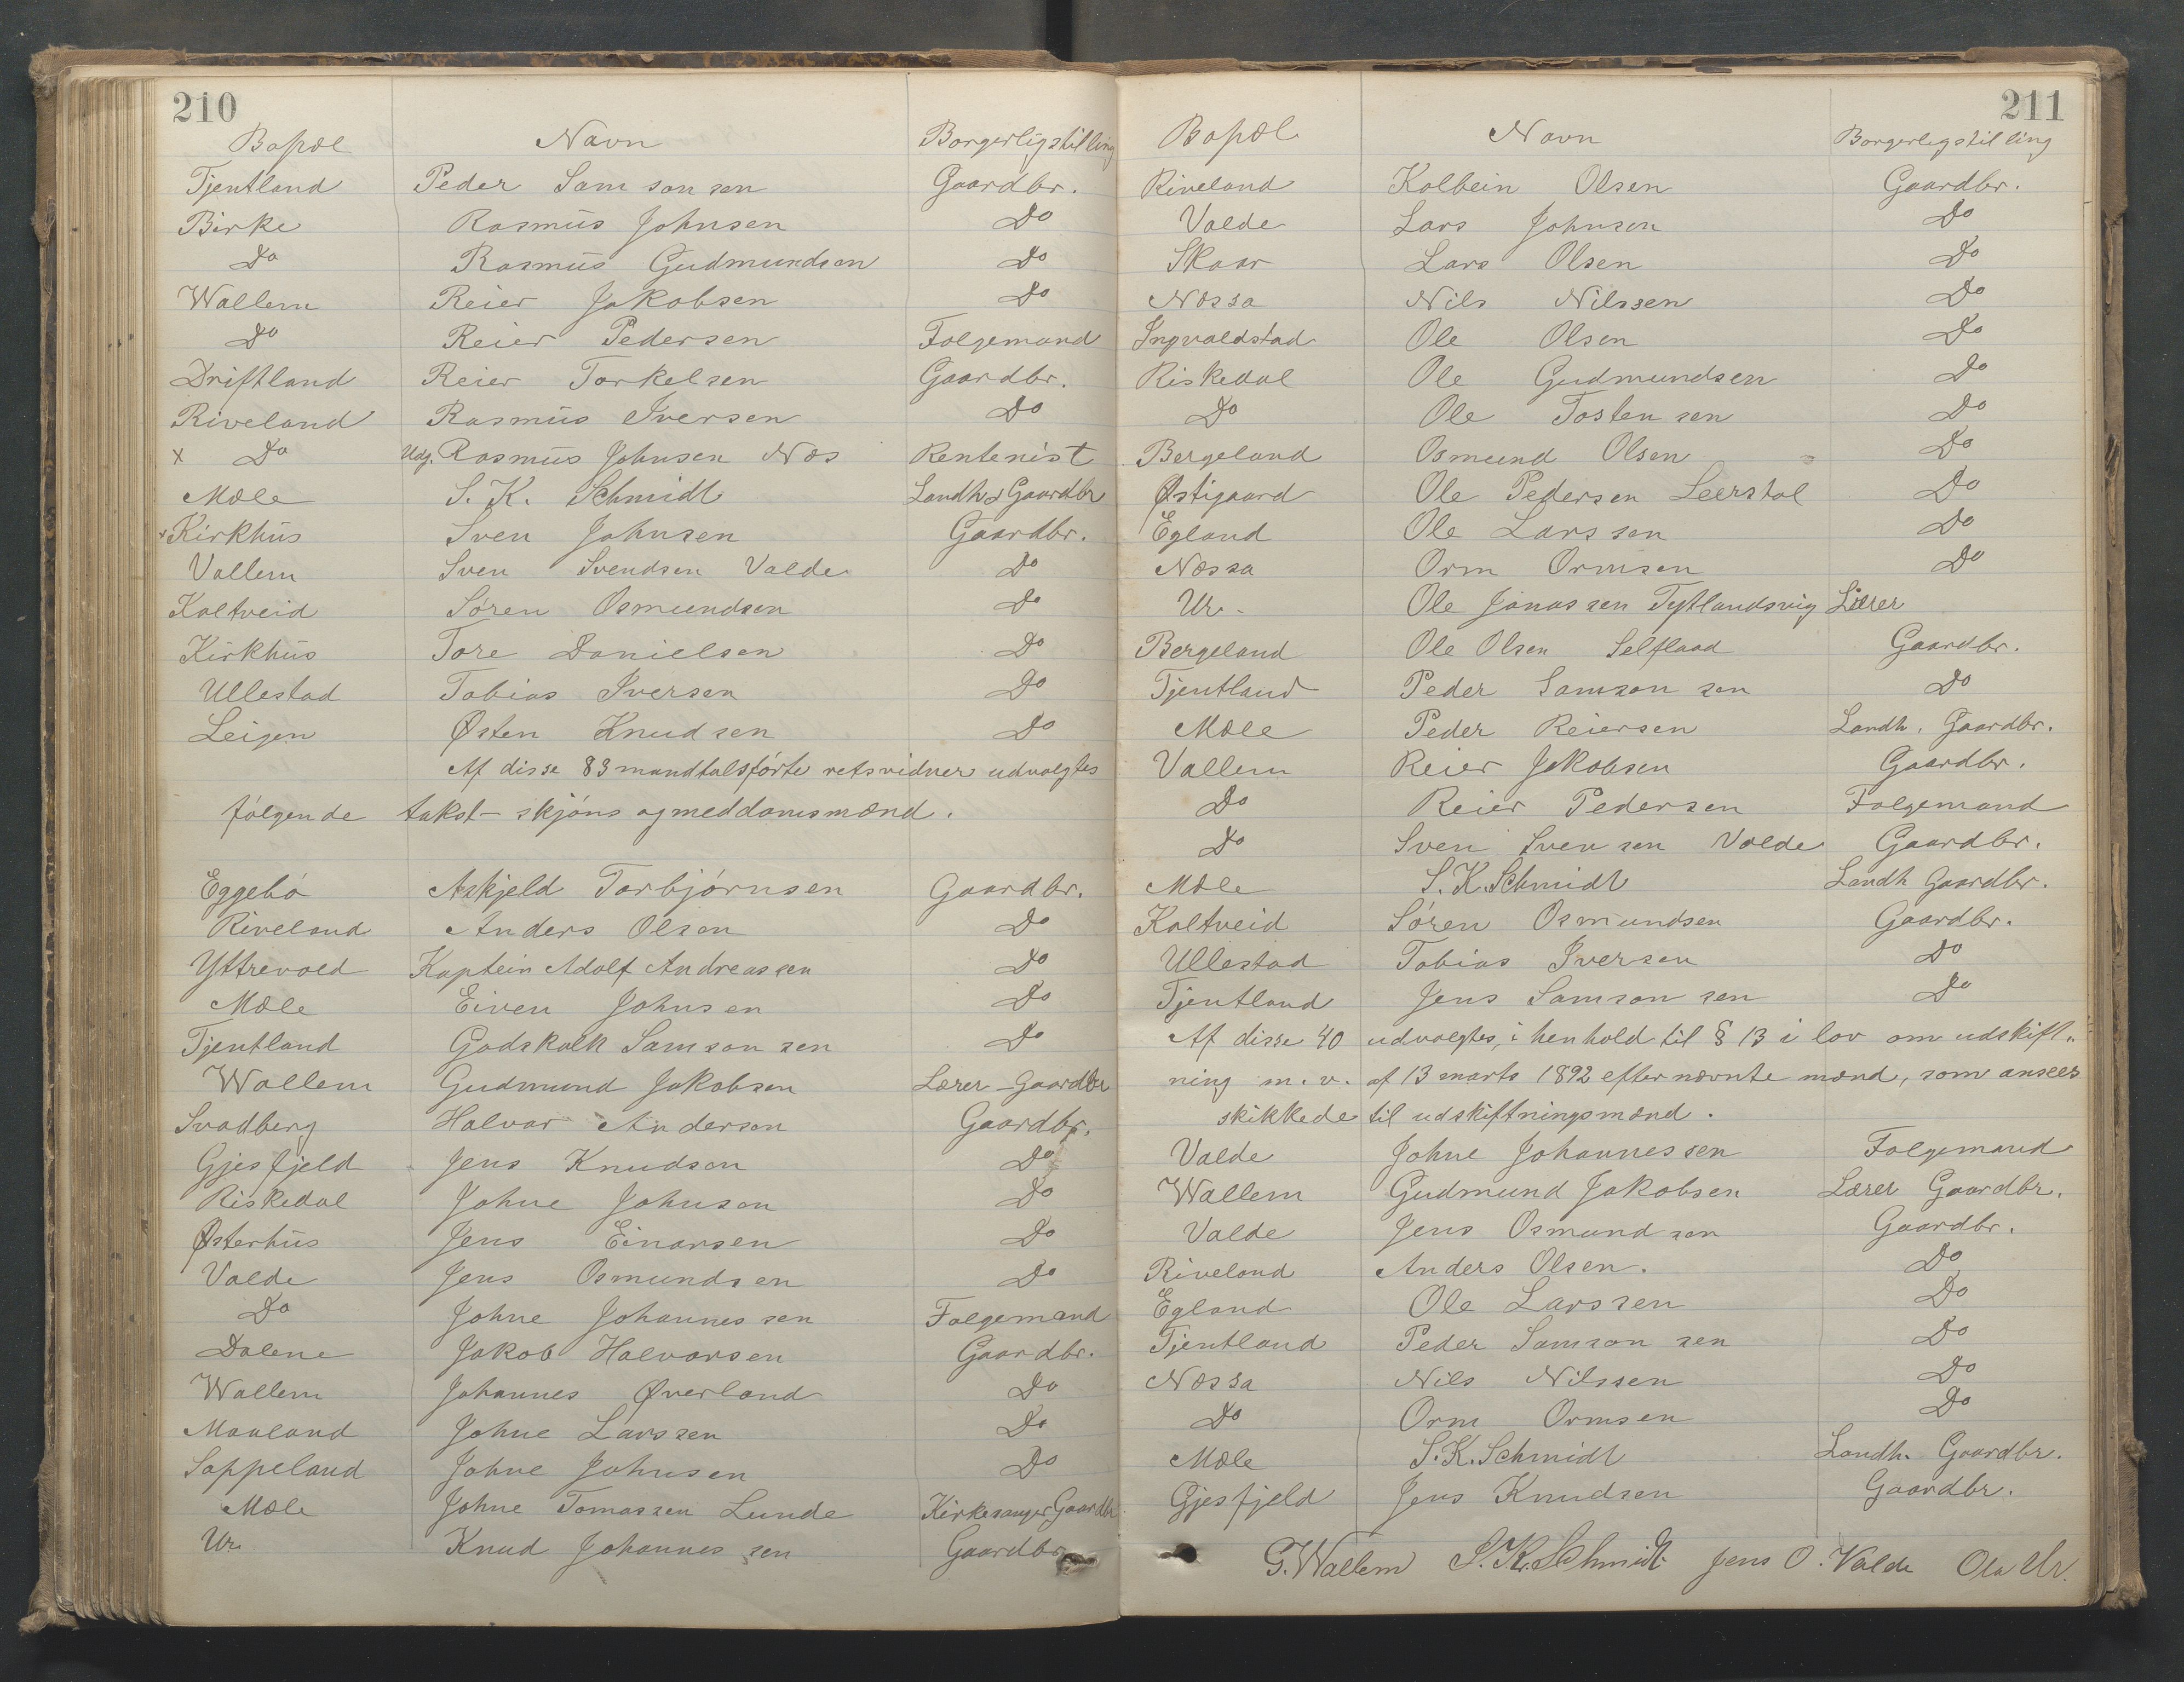 210
Bopæl Navn Borgerligstilling
Tjentland Peder Samsonsen Gaardbr.
Birke Rasmus Johnsen Do
Do Rasmus Gudmundsen Do
Wallem Reier Jakobsen Do
Do Reier Pedersen Folgemand
Driftland Reier Torkelsen Gaardbr.
Riveland Rasmus Iversen Do
x Do Udg. Rasmus Johnsen Næs Rentenist
Mæle S. K. Schmidt Landh & Gaardbr
x Kirkhus Sven Johnsen Gaardbr.
Vallem Sven Svendsen Valde Do
Koltveid Søren Osmundsen Do
Kirkhus Tore Danielsen Do
Ullestad Tobias Iversen Do
Leigen Østen Knudsen Do
Af disse 83 mandtalsførte retsvidner udvalgtes
følgende takst- skjøns og meddomsmænd.
Eggebø Askjeld Torbjørnsen Gaardbr.
Riveland Anders Olsen Do
Yttrevold Kaptein Adolf Andreassen Do
Mæle Eiven Johnsen Do
Tjentland Godskalk Samsonsen Do
Wallem Gudmund Jakobsen Lærer-Gaardbr
Svadberg Halvor Andersen Gaardbr.
Gjesfjeld Jens Knudsen Do
Riskedal Johne Johnsen Do
Østerhus Jens Einarsen Do
Valde Jens Osmundsen Do
Do Johne Johannessen Folgemand
Dalene Jakob Halvorsen Gaardbr.
Wallem Johannes Øverland Do
Maaland Johne Larssen Do
Soppeland Johne Johnsen Do
Mæle Johne Tomassen Lunde Kirkesanger Gaardbr
Ur. Knud Johannessen Gaardbr
211
Bopæl Navn Borgerligstilling
Riveland Kolbein Olsen Gaardbr.
Valde Lars Johnsen Do
Skaar Lars Olsen Do
Næssa Nils Nilssen Do
Ingvaldstad Ole Olsen Do
Riskedal Ole Gudmundsen Do
Do Ole Tostensen Do
Bergeland Osmund Olsen Do
Østigaard Ole Pedersen Leerstol Do
Egland Ole Larssen Do
Næssa Orm Ormsen Do
Ur. Ole Jonassen Tytlandsvig Lærer
Bergeland Ole Olsen Selflaad Gaardbr.
Tjentland Peder Samsonsen Do
Mæle Peder Reiersen Landh. Gaardbr.
Vallem Reier Jakobsen Gaardbr.
Do Reier Pedersen Folgemand
Do Sven Svensen Valde Gaardbr.
Mæle S. K. Schmidt Landh Gaardbr.
Koltveid Søren Osmundsen Gaardbr.
Ullestad Tobias Iversen Do
Tjentland Jens Samsonsen Do
Af disse 40 udvalgtes, i henhold til § 13 i lov om udskift„
ning m. v. af 13 marts 1892 efternævnte mænd, som ansees
skikkede til udskiftningsmænd.
Valde Johne Johannessen Folgemand
Wallem Gudmund Jakobsen Lærer Gaardbr.
Valde Jens Osmundsen Gaardbr.
Riveland Anders Olsen. Do
Egland Ole Larssen Do
Tjentland Peder Samsonsen Do
Næssa Nils Nilssen Do
Do Orm Ormsen Do
Mæle S. K. Schmidt Landh. Gaardbr.
Gjesfjeld Jens Knudsen Gaardbr.
G. Wallem S. K. Schmidt Jens O. Valde Ola Ur.